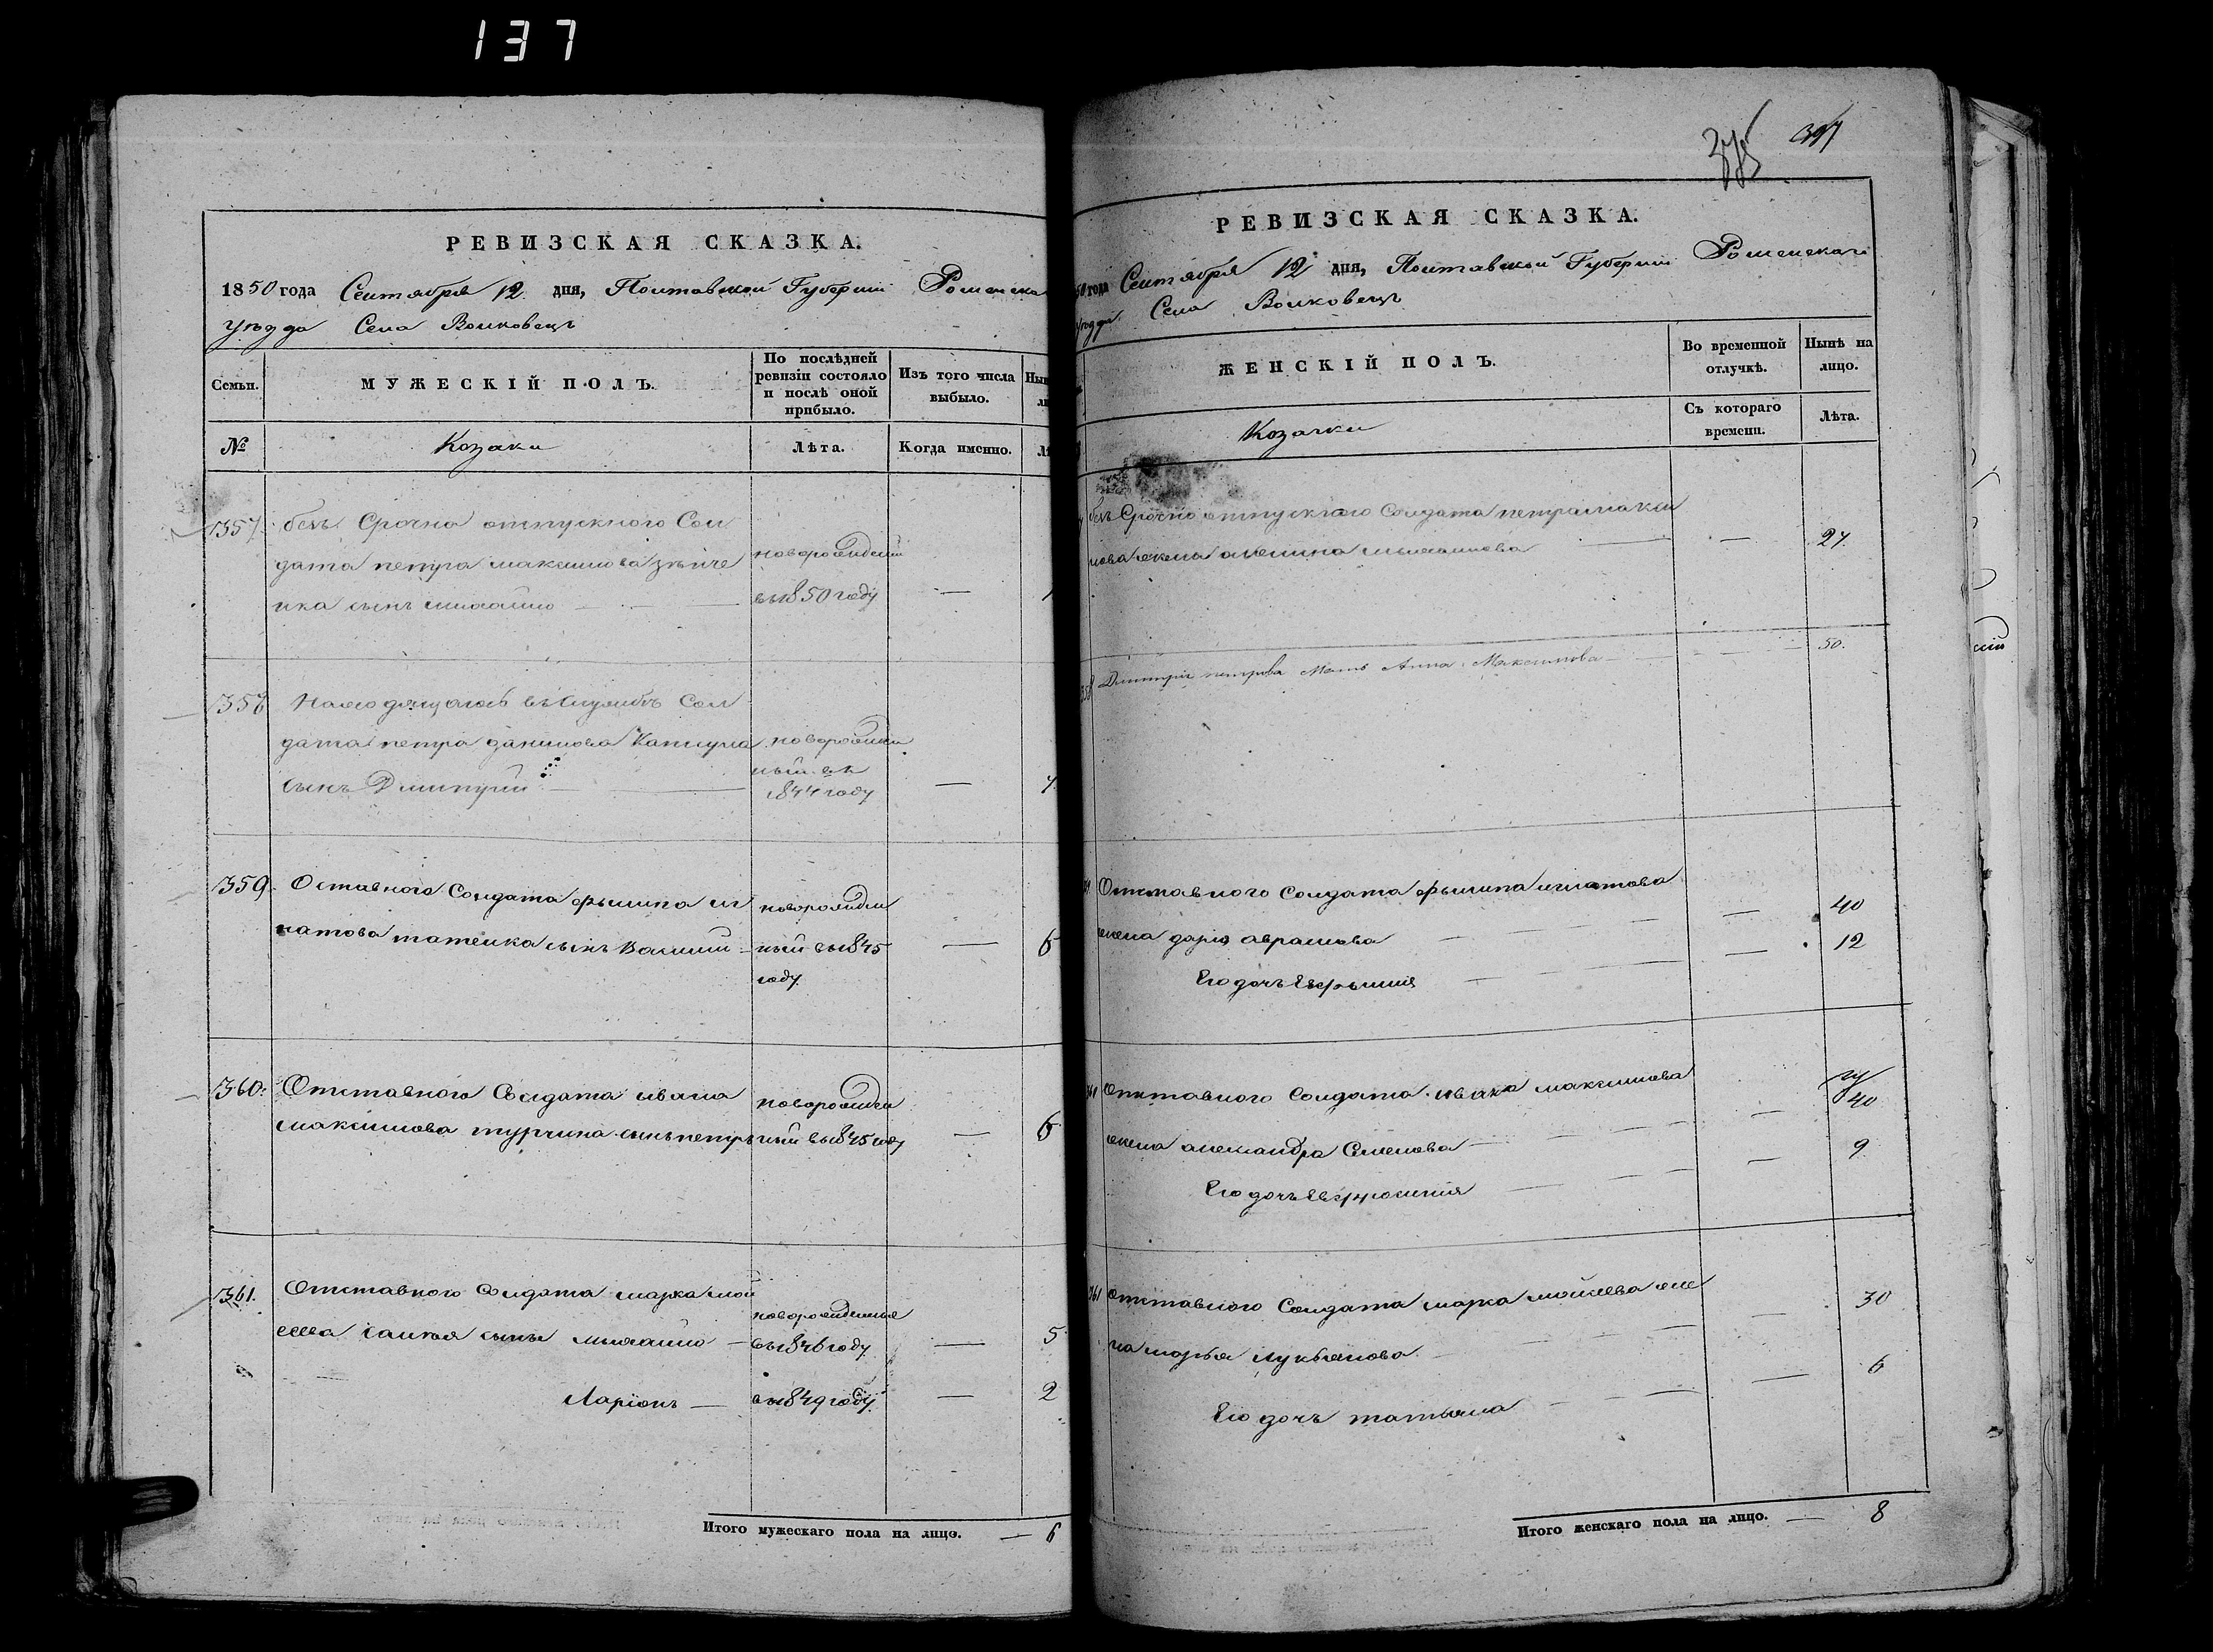 137
РЕВИЗСКАЯ СКАЗКА.
1850 года Сентября 12 дня, Полтавской Губернии Роменска
Уѣзда Села Волковецъ
Семьи.
МУЖЕСКІЙ ПОЛЪ.
По послѣдней
ревизіи состояло
и послѣ оной
прибыло.
Изъ того числа
выбыло.
№
Козаки
Лѣта.
Когда именно.
357. безъ Срочно отпускного Сол
дата петра максимова
новорожденный
сынъ михайло —
въ 1850 году — 1
358 Находящагось въ Службѣ Сол
дата петра данилова
сынъ Дмитрій —
новорожден
ный въ
1844 году — 7
359. Оставного Солдата филипа иг
натова татенка сынъ Василий —
новорожден
ный въ 1845
году — 6
360. Отставного Солдата ивана
максимова турчина сынъ петръ
новорожден
ный въ 1845 году — 6
361. Отставного Солдата марка мой
сеева сынъ михайло —
новорожденные
въ 1846 году — 5
Ларіонъ — въ 1849 году — 2
Итого мужескаго пола на лицо. — 6
375 397
РЕВИЗСКАЯ СКАЗКА.
50 года Сентября 12 дня, Полтавской Губерніи Роменскаго
Уѣзда Села Волковецъ
ЖЕНСКІЙ ПОЛЪ.
Во временной
отлучкѣ.
Нынѣ на
лицо.
Козачки
Съ котораго
времени.
Лѣта.
безъ Срочно отпускного Солдата петра макси
мова жена михайлова — 27.
358 Дмитрія петрова Мать Анна Максимова — 50.
Отставного Солдата филипа игнатова
жена дарія аврамова — 40
Его дочь Евфимия — 12
361 Отставного Солдата ивана максимова
жена александра Семенова — 40
Его дочь Евфросинія — 9
361 Отставного Солдата марка мойсеева же
на марья лукьянова — 30
Его дочь татьяна — 6
Итого женскаго пола на лицо. — 8